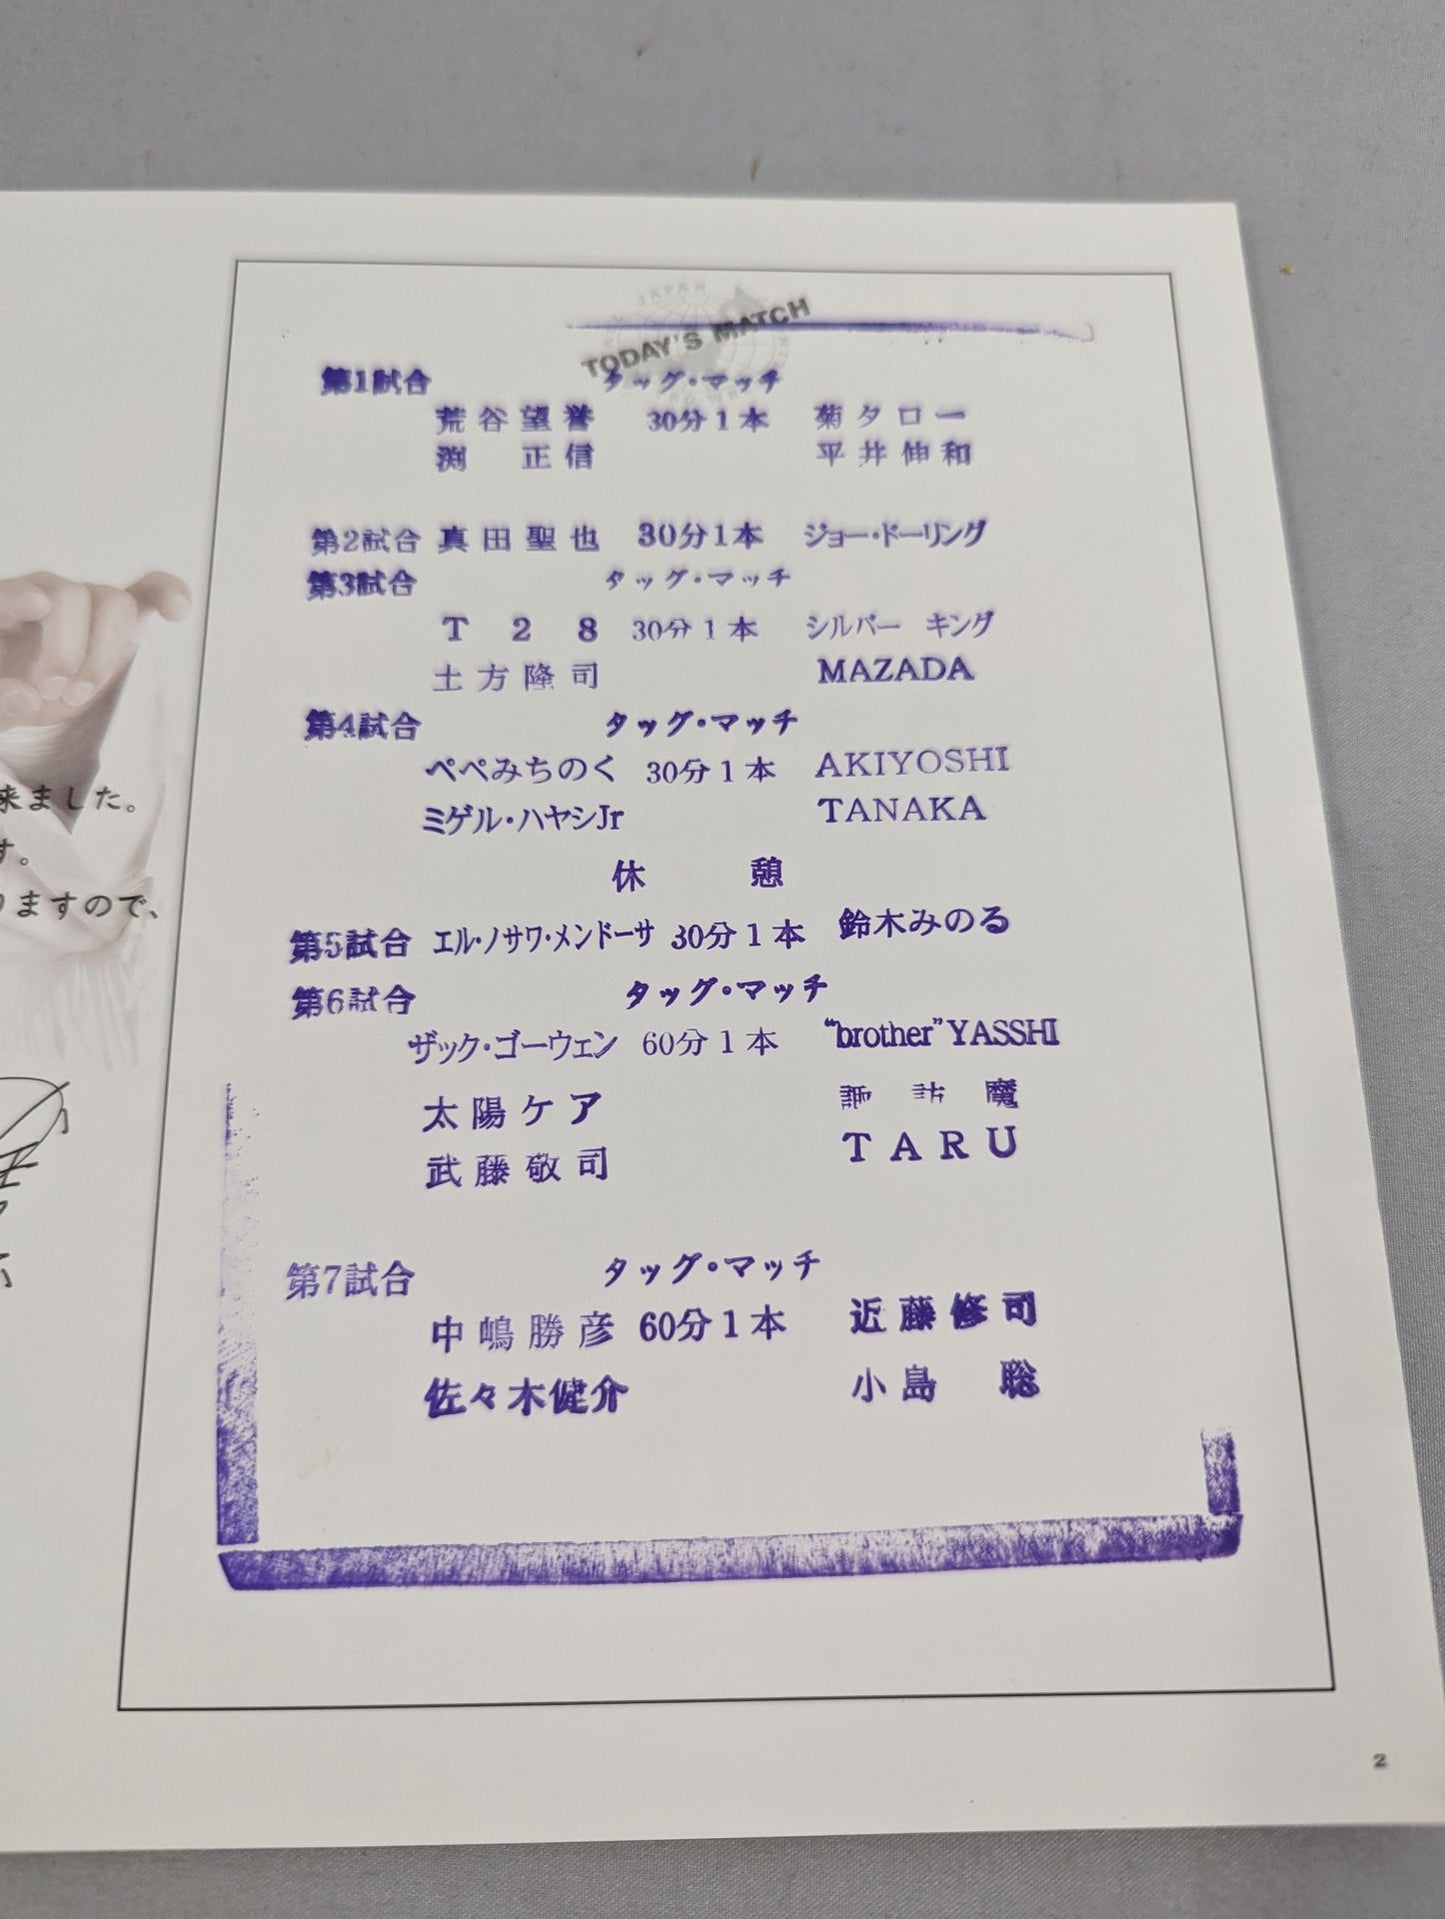 TODAY'S MATCH
第1試合 タッグ・マッチ
荒谷望誉 30分1本 菊タロー
渕 正信 平井伸和
第2試合 真田聖也 30分1本 ジョー・ドーリング
第3試合 タッグ・マッチ
T28 30分1本 シルバー キング
土方隆司 MAZADA
第4試合 タッグ・マッチ
ぺぺみちのく 30分1本 AKIYOSHI
ミゲル・ハヤシJr TANAKA
休 憩
第5試合 エル・ノサワ・メンドーサ 30分1本 鈴木みのる
第6試合 タッグ・マッチ
ザック・ゴーウェン 60分1本 “brother”YASSHI
太陽ケア 諏訪魔
武藤敬司 TARU
第7試合 タッグ・マッチ
中嶋勝彦 60分1本 近藤修司
佐々木健介 小島 聡
来ました。
す。
りますので、
2